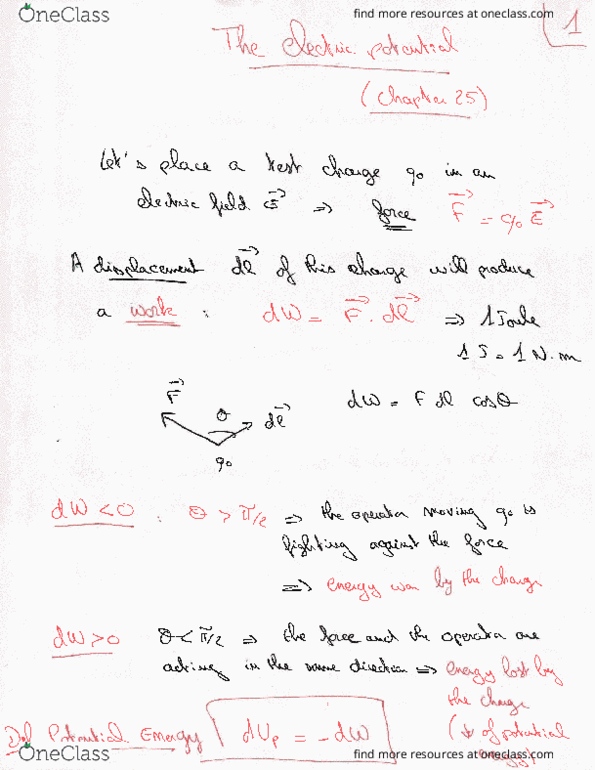 OneClass
find more resources at oneclass.com
1
The electric potential
(chapter 25)
Let's place a test charge q₀ in an
electric field E⃗ ⇒ force F⃗ = q₀ E⃗
A displacement dl⃗ of this charge will produce
a work : dW = F⃗ . dl⃗ ⇒ 1 Joule
1 J = 1 N.m
F⃗ θ dl⃗
q₀
dW = F dl cosθ
dW < 0 : θ > π/2 ⇒ the operator moving q₀ is
fighting against the force
⇒ energy won by the charge
dW > 0 θ < π/2 ⇒ the force and the operator are
acting in the same direction ⇒ energy lost by
the charge
(↓ of potential
energy)
Def Potential Energy dUₚ = -dW
OneClass
find more resources at oneclass.com